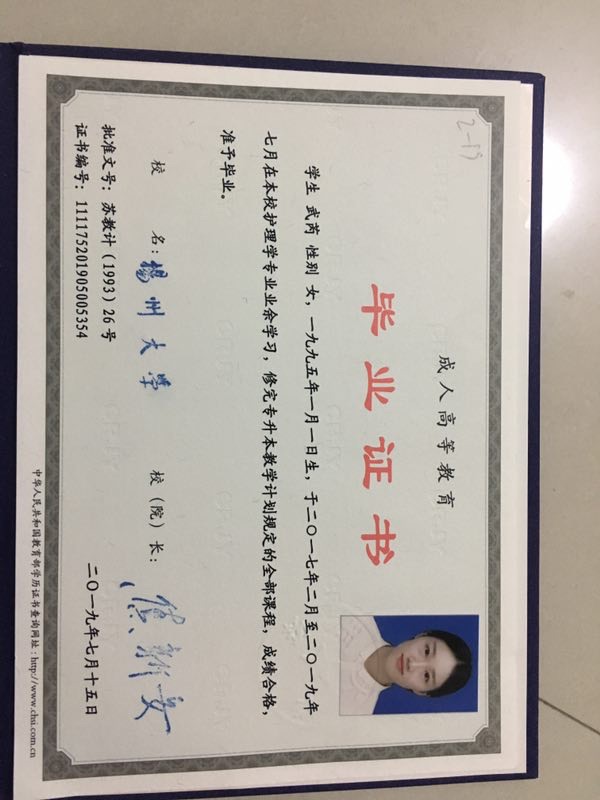 2-19
成人高等教育
毕业证书
学生 武芮 性别 女，一九九五年一月一日生，于二〇一七年二月至二〇一九年
七月在本校护理学专业业余学习，修完专升本教学计划规定的全部课程，成绩合格，
准予毕业。
校 名：扬州大学 校（院）长：
批准文号：苏教计（1993）26号
证书编号：111175201905005354
二〇一九年七月十五日
中华人民共和国教育部学历证书查询网址：http://www.chsi.com.cn